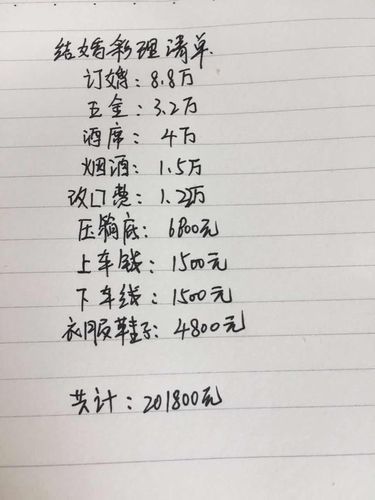 结婚彩理清单
订婚：8.8万
五金：3.2万
酒席：4万
烟酒：1.5万
改口费：1.22万
压箱底：6800元
上车钱：1500元
下车线：1500元
衣服鞋子：4800元
共计：201800元